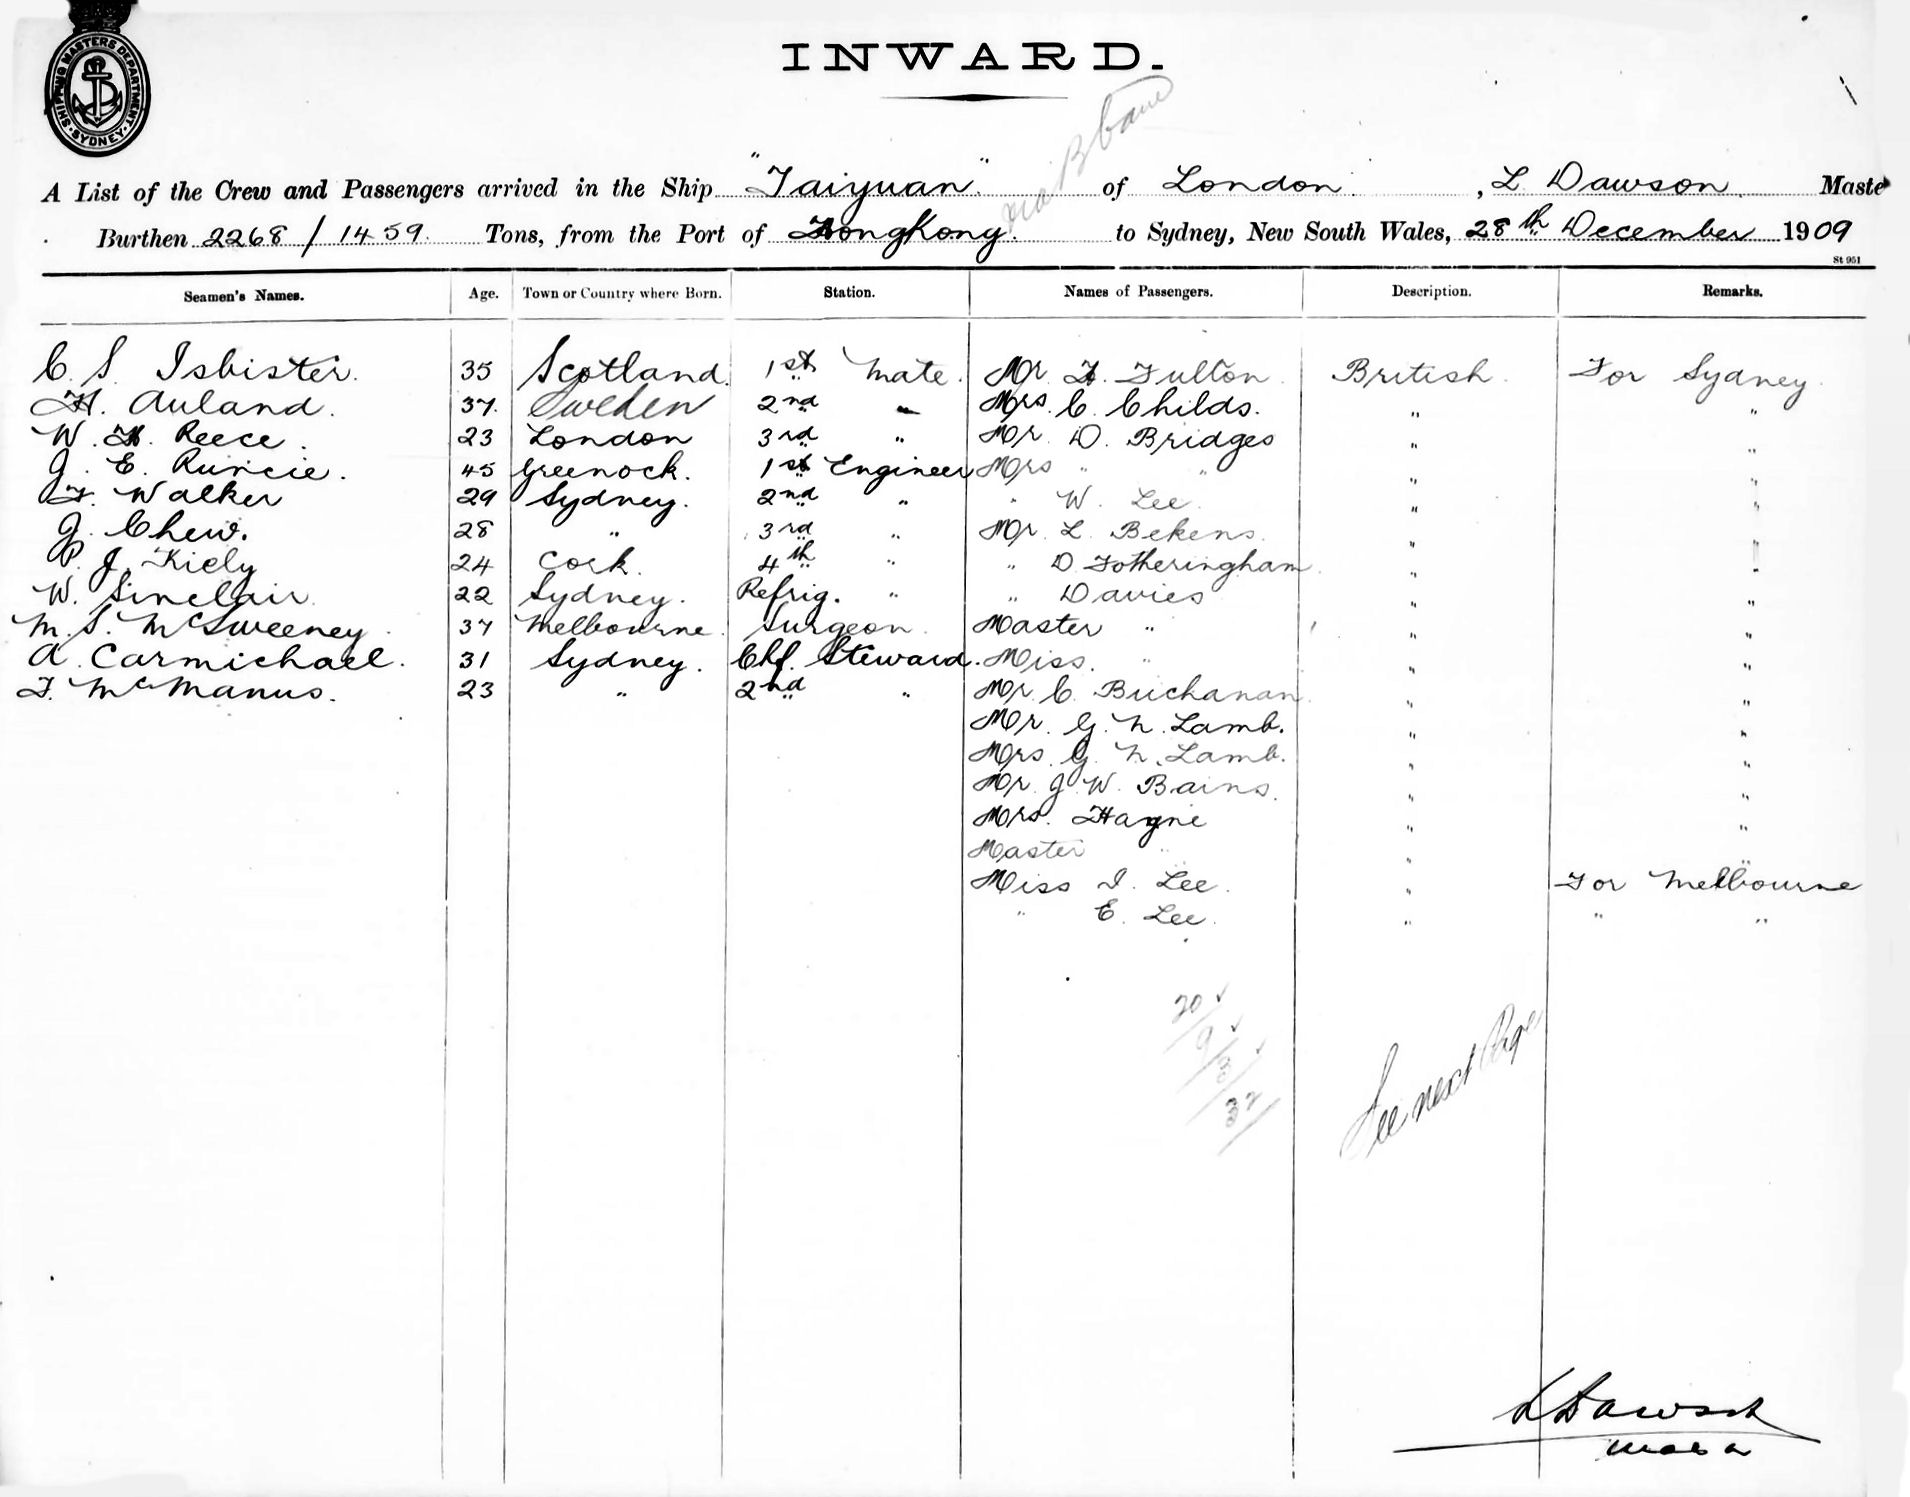 SHIPPING MASTERS DEPARTMENT · SYDNEY ·
INWARD.
via Bbane
A List of the Crew and Passengers arrived in the Ship "Taiyuan" of London, L Dawson Maste
Burthen 2268 / 1459 Tons, from the Port of HongKong to Sydney, New South Wales, 28th December 1909
St 951
Seamen's Names. Age. Town or Country where Born. Station. Names of Passengers. Description. Remarks.
C. S. Isbister. 35 Scotland. 1st Mate. Mr H. Fulton British. For Sydney
H. Auland. 37. Sweden 2nd " Mrs C. Childs. " "
W. H. Reece. 23 London 3rd " Mr D. Bridges " "
J. E. Runcie. 45 Greenock. 1st Engineer Mrs " " " "
F. Walker 29 Sydney. 2nd " " W. Lee " "
J. Chew. 28 " 3rd " Mr L Bekens. " "
P. J. Kiely 24 Cork. 4th " " D Fotheringham " "
W. Sinclair 22 Sydney. Refrig. " " Davies " "
M. S. McSweeney. 37 Melbourne Surgeon. Master " " "
A. Carmichael. 31 Sydney. Chf. Steward. Miss. " " "
F. McManus. 23 " 2nd " Mr C. Buchanan " "
Mr. G. N. Lamb. " "
Mrs. G. N. Lamb. " "
Mr. J. W. Bains. " "
Mrs. Hayne " "
Master " " "
Miss I. Lee. " For Melbourne
" E. Lee. " " "
20
9
3
32
See next Page
L Dawson